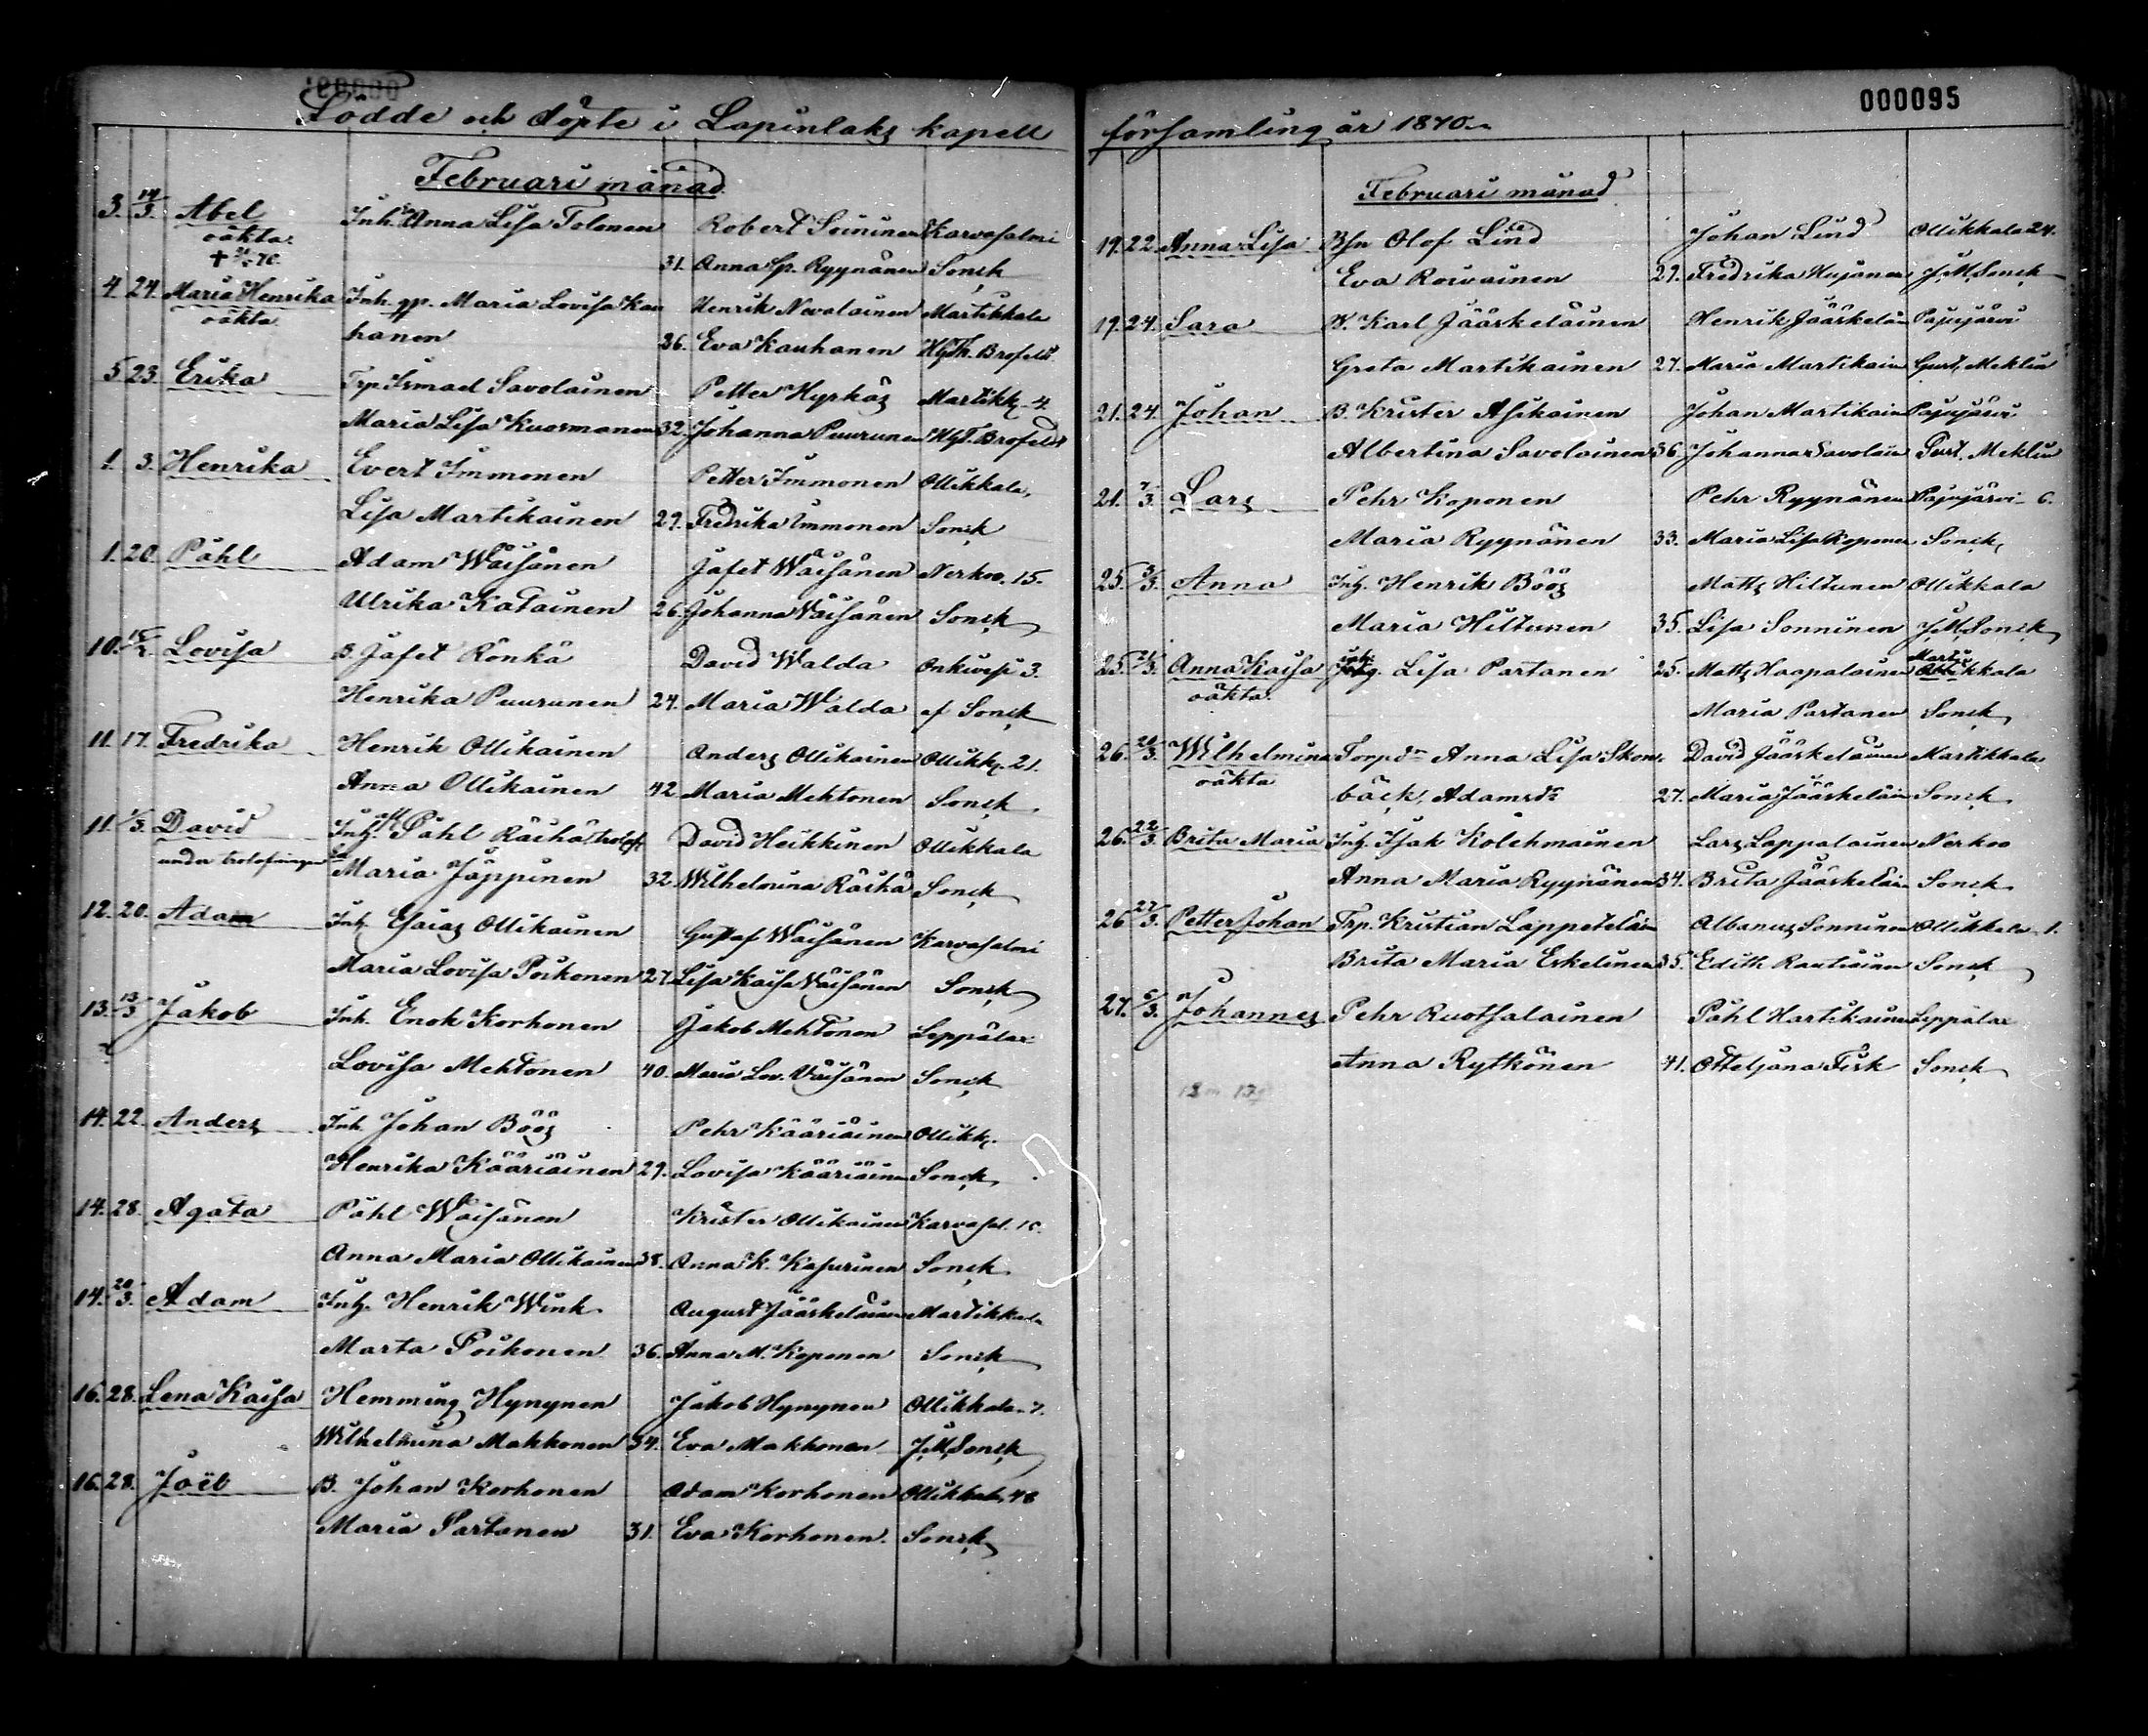 000095
Födde och döpte i Lapinlaks kapell
Februari månad
3. 14/3. Abel Inh. Anna Lisa Tolonen Robert Soininen Karvasalmi
oäkta. 31. Anna Gr. Ryynänen Sonck
4 24. Maria Henrika Inh. gp. Maria Lovisa Kau Henrik Nevalainen Martikkala
oäkta hanen 36. Eva Kauhanen HGTh. Brofeldt
5 23. Erika Trp Ismael Savolainen Petter Hyrkäs Martikk. 4.
Maria Lisa Kuosmanen 32. Johanna Puurunen HGT. Brofeldt
1. 3. Henrika Evert Immonen Petter Immonen Ollikkala,
Lisa Martikainen 29. Fredrika Immonen Sonck
1. 20. Påhl Adam Wäisänen Jafet Wäisänen Nerkoo. 15.
Ulrika Katainen 26. Johanna Wäisänen Sonck
10. Lovisa B. Jafet Rönkä David Walda Onkivesi 3.
Henrika Puurunen 24. Maria Walda af Sonck
11. 17. Fredrika Henrik Ollikainen Anders Ollikainen Ollikk. 21.
Anna Ollikainen 42 Maria Mehtonen Sonck.
11. 1/3. David Inh. Påhl Räihä, trolofv. David Heikkinen Ollikkala
under trolofningen Maria Jäppinen 32. Wilhelmina Räihä Sonck
12. 20. Adam Inh. Esaias Ollikainen Gustaf Wäisänen Karvasalmi
Maria Lovisa Poikonen 27. Lisa Kaisa Wäisänen Sonck
13. 13/3 Jakob Inh. Enok Korhonen Jakob Mehtonen Leppälax
Lovisa Mehtonen 40. Maria Lov. Väisänen Sonck
14. 22. Anders Inh. JohanBöös Pehr Kääriäinen Ollikk.
Henrika Kääriäinen 29. Lovisa Kääriäinen Sonck
14. 28. Agata Påhl Wäisänen Krister Ollikainen Karvasal. 10.
Anna Maria Ollikainen 38. Anna K. Kasurinen Sonck.
14. 20/3. Adam Inh. Henrik Wink August Jääskeläinen Martikkala
Marta Poikonen 36. Anna M. Koponen Sonck
16. 28. Lena Kaisa Hemming Hynynen Jakob Hynynen Ollikkala. 7.
Wilhelmina Makkonen 34. Eva Makkonen J.M. Sonck
16. 28. Joël B. Johan Korhonen Adam Korhonen Ollikkala, 48
Maria Partanen 31. Eva Korhonen. Sonck
församling år 1870.
Februari månad
19. 22. Anna Lisa Bsn Olof Lind Johan Lind Ollikkala 24.
Eva Roivainen 29. Fredrika Hujanen J.M. Sonck
19. 24. Sara B. Karl Jääskeläinen Henrik Jääskeläin Pajujärvi
Greta Martikainen 27. Maria Martikain Gust. Meklin
21. 24. Johan B. Krister Asikainen Johan Martikain Pajujärvi
Albertina Savolainen 36. Johanna Savolain Gust. Meklin
21. 7/3. Lars Pehr Koponen Pehr Ryynänen Pajujärvi 6.
Maria Ryynänen 33. Maria Lisa Koponen Sonck,
25. 3/3. Anna Inh. Henrik Böös Matts Hiltunen Ollikkala
Maria Hiltunen 35. Lisa Sonninen J.M. Sonck
25. 21/3. Anna Kaisa Lisa Partanen 25. Matts Haapalainen Martikkala
oäkta. Maria Partanen Sonck
26. 20/3. Wilhelmina Torpdr Anna Lisa Skom- David Jääskeläinen Martikkala
oäkta bäck, Adamsdr 27. Maria Jääskeläin Sonck.
26. 22/3. Brita Maria Inh. Isak Kolehmainen Lars Lappalainen Nerkoo
Anna Maria Ryynänen 34. Brita Jääskeläin Sonck.
26 27/3. Petter Johan Trp. Kristian Lappeteläin Albanus Sonninen Ollikkala 1.
Brita Maria Eskelinen 35. Edith Rautiainen Sonck
27. 6/3. Johannes Pehr Ruotsalainen Påhl Hartikainen Leppälax
Anna Rytkönen 41. Otteljana Fisk Sonck